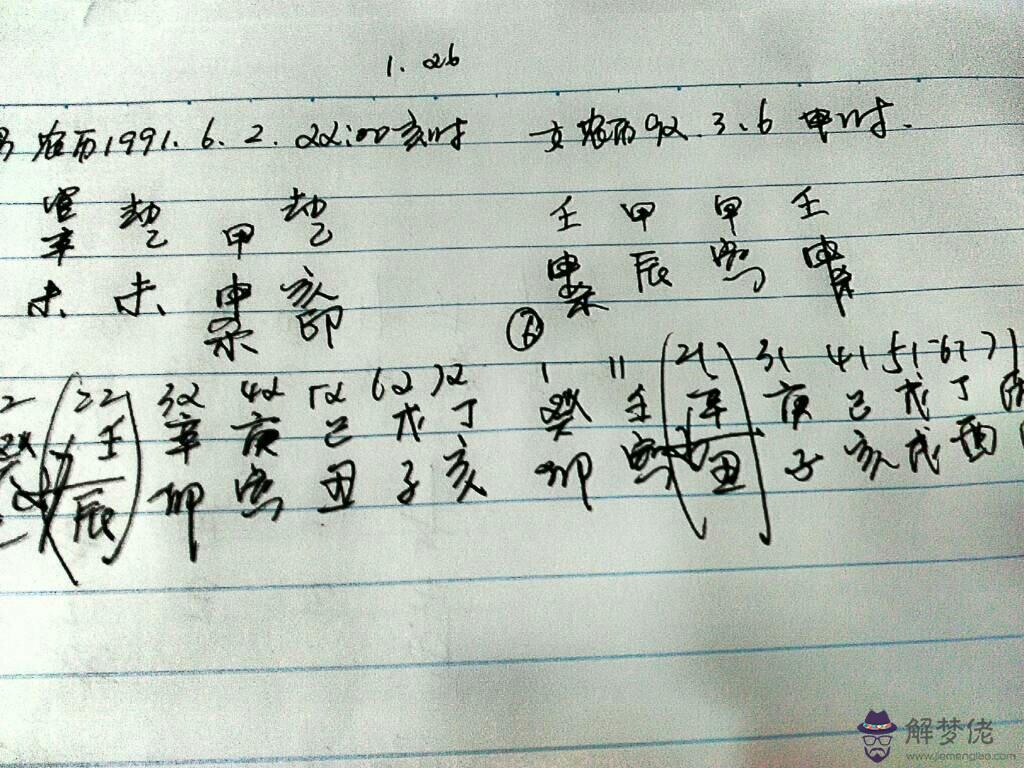 1. 26
男 农历1991.6.2.22:00亥时 女 农历92.3.6 申时.
官 劫 劫 壬 甲 甲 壬
辛 乙 甲 乙 申 辰 寅 申
未 未 申 亥 杀
杀 卩 ⑥
2 22 32 42 52 62 72 1 11 21 31 41 51 61 71
癸 壬 辛 庚 己 戊 丁 癸 壬 辛 庚 己 戊 丁
辰 卯 寅 丑 子 亥 卯 寅 丑 子 亥 戌 酉
解梦佬
www.jiemenglao.com